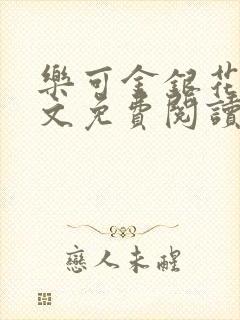 樂可金銀花
文免費閱讀
戀人未醒